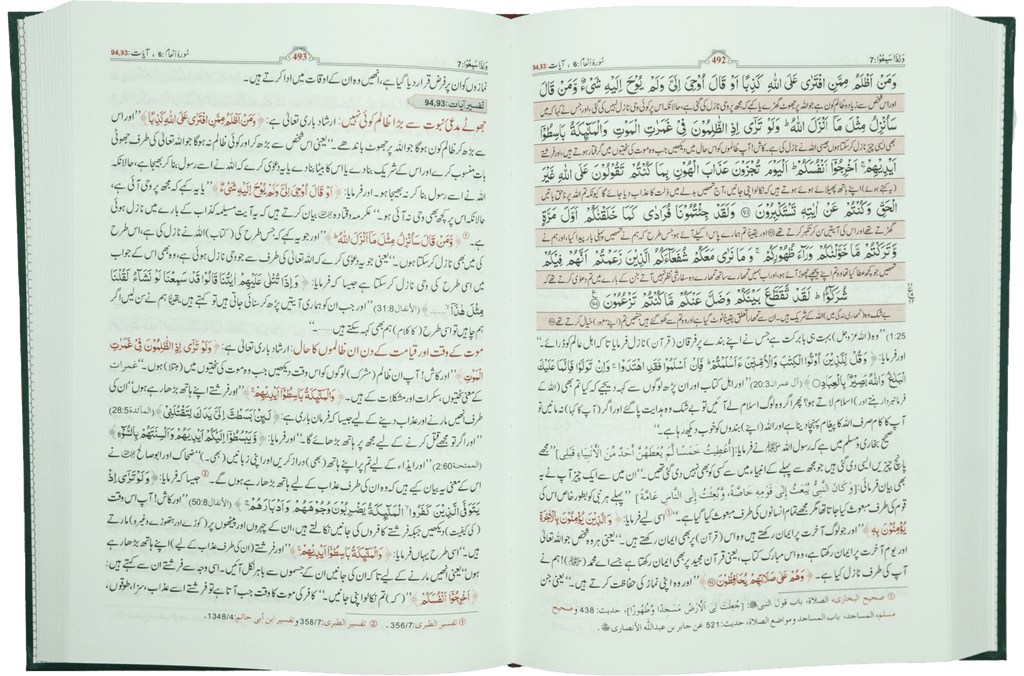 وَإِذَا سَمِعُوا: 7
492
سُورَۃ اَنعام: 6 ، آیات: 94,93
وَمَنْ اَظْلَمُ مِمَّنِ افْتَرٰى عَلَى اللّٰهِ كَذِبًا اَوْ قَالَ اُوْحِيَ اِلَيَّ وَلَمْ يُوْحَ اِلَيْهِ شَيْءٌ وَّمَنْ قَالَ
اور اس شخص سے زیادہ ظالم کون ہے جو اللہ پر جھوٹ گھڑے یا کہے کہ مجھ پر وحی نازل کی گئی ہے، حالانکہ اس پر کوئی وحی نازل نہیں کی گئی، اور جس نے کہا کہ میں
سَاُنْزِلُ مِثْلَ مَاۤ اَنْزَلَ اللّٰهُ ؕ وَلَوْ تَرٰۤى اِذِ الظّٰلِمُوْنَ فِيْ غَمَرٰتِ الْمَوْتِ وَالْمَلٰٓئِكَةُ بَاسِطُوْۤا
بھی ایسی چیز نازل کر سکتا ہوں جیسی اللہ نے نازل کی ہے، کاش! آپ ظالموں کو اس حال میں دیکھیں جب وہ موت کی سختیوں میں گرفتار ہوتے ہیں، اور فرشتے
اَيْدِيْهِمْ ۚ اَخْرِجُوْۤا اَنْفُسَكُمْ ؕ اَلْيَوْمَ تُجْزَوْنَ عَذَابَ الْهُوْنِ بِمَا كُنْتُمْ تَقُوْلُوْنَ عَلَى اللّٰهِ غَيْرَ
(یہ کہتے ہوئے) اپنے ہاتھ پھیلائے ہوئے ہوتے ہیں کہ نکالو اپنی جانیں، آج تمھیں بدلے میں ذلت کا عذاب دیا جائے گا کیونکہ تم اللہ پر ناحق باتیں
الْحَقِّ وَكُنْتُمْ عَنْ اٰيٰتِهٖ تَسْتَكْبِرُوْنَ ۝93 وَلَقَدْ جِئْتُمُوْنَا فُرَادٰى كَمَا خَلَقْنٰكُمْ اَوَّلَ مَرَّةٍ
گھڑتے تھے اور اس کی آیتیں سن کر تکبر کرتے تھے 93 اور یقیناً تم ہمارے پاس اکیلے آئے ہو جس طرح کہ ہم نے تمھیں پہلی بار پیدا کیا، اور ہم نے
وَّتَرَكْتُمْ مَّا خَوَّلْنٰكُمْ وَرَآءَ ظُهُوْرِكُمْ ۚ وَمَا نَرٰى مَعَكُمْ شُفَعَآءَكُمُ الَّذِيْنَ زَعَمْتُمْ اَنَّهُمْ فِيْكُمْ
تمھیں جو کچھ عطا کیا تھا وہ تم اپنے پیچھے چھوڑ آئے ہو، اور اب ہمیں تمھارے ساتھ تمھارے وہ سفارشی نظر نہیں آتے جن کے بارے میں تم دعوٰی کرتے تھے کہ
شُرَكٰٓؤُا ؕ لَقَدْ تَّقَطَّعَ بَيْنَكُمْ وَضَلَّ عَنْكُمْ مَّا كُنْتُمْ تَزْعُمُوْنَ ۝94
بے شک وہ تمھاری بندگی میں اللہ کے شریک ہیں۔ ان سے تمھارا تعلق یقیناً ٹوٹ گیا ہے اور وہ تم سے کھو گئے جنھیں تم (اپنے معبود) خیال کرتے تھے 94
1:25) ”وہ (اللہ عزوجل) بہت ہی بابرکت ہے جس نے اپنے بندے پر فرقان (قرآن) نازل فرمایا تاکہ اہل عالم کو ڈرائے۔“
اور فرمایا: ﴿وَقُلْ لِّلَّذِيْنَ اُوْتُوا الْكِتٰبَ وَالْاُمِّيّٖنَ ءَاَسْلَمْتُمْ ؕ فَاِنْ اَسْلَمُوْا فَقَدِ اهْتَدَوْا ۚ وَاِنْ تَوَلَّوْا فَاِنَّمَا عَلَيْكَ
الْبَلٰغُ ؕ وَاللّٰهُ بَصِيْرٌۢ بِالْعِبَادِ﴾ (آل عمران 20:3) ”اور اہل کتاب اور ان پڑھ لوگوں سے کہہ دیجیے کہ کیا تم بھی (اللہ کے
فرمانبردار بنتے اور) اسلام لاتے ہو؟ پھر اگر وہ لوگ اسلام لے آئیں تو بے شک وہ ہدایت پا گئے اور اگر (آپ کا کہا) نہ مانیں تو
آپ کا کام صرف اللہ کا پیغام پہنچا دینا ہے اور اللہ (اپنے) بندوں کو خوب دیکھ رہا ہے۔“
صحیح بخاری و مسلم میں ہے کہ رسول اللہ ﷺ نے فرمایا: [أُعْطِيتُ خَمْسًا لَّمْ يُعْطَهُنَّ أَحَدٌ مِّنَ الْأَنْبِيَاءِ قَبْلِي] ”مجھے
پانچ چیزیں ایسی دی گئی ہیں جو مجھ سے پہلے کے انبیاء میں سے کسی کو بھی نہیں دی گئی تھیں۔“ ان میں سے ایک چیز آپ نے یہ
بھی بیان فرمائی: [وَكَانَ النَّبِيُّ يُبْعَثُ إِلَى قَوْمِهِ خَاصَّةً، وَبُعِثْتُ إِلَى النَّاسِ عَامَّةً] ”پہلے ہر نبی کو بطور خاص اس کی
قوم کی طرف مبعوث کیا جاتا تھا مگر مجھے تمام انسانوں کی طرف مبعوث کیا گیا ہے۔“① اسی لیے فرمایا: ﴿وَالَّذِيْنَ يُؤْمِنُوْنَ بِالْاٰخِرَةِ
يُؤْمِنُوْنَ بِهٖ﴾ ”اور جو لوگ آخرت پر ایمان رکھتے ہیں وہ اس (قرآن) پر بھی ایمان رکھتے ہیں۔“ یعنی ہر وہ شخص جو اللہ تعالیٰ
اور یوم آخرت پر ایمان رکھتا ہے، وہ اس مبارک کتاب، یعنی قرآن مجید پر بھی ایمان رکھتا ہے جسے اے محمد (ﷺ)! ہم نے
آپ کی طرف نازل کیا ہے۔ ﴿وَهُمْ عَلٰى صَلَاتِهِمْ يُحَافِظُوْنَ﴾ ”اور وہ اپنی نماز کی حفاظت کرتے ہیں۔“ یعنی جن
① صحیح البخاری، الصلاة، باب قول النبي ﷺ: [جُعِلَتْ لِيَ الْأَرْضُ مَسْجِدًا وَّطَهُورًا]، حدیث: 438 و صحیح
مسلم، المساجد، باب المساجد ومواضع الصلاة، حدیث: 521 عن جابر بن عبدالله الأنصاري.
وَإِذَا سَمِعُوا: 7
493
سُورَۃ اَنعام: 6 ، آیات: 94,93
نمازوں کو ان پر فرض قرار دیا گیا ہے، انھیں وہ ان کے اوقات میں ادا کرتے ہیں۔
تفسیر آیات: 94,93
جھوٹے مدعیٔ نبوت سے بڑا ظالم کوئی نہیں: ارشاد باری تعالیٰ ہے: ﴿وَمَنْ اَظْلَمُ مِمَّنِ افْتَرٰى عَلَى اللّٰهِ كَذِبًا﴾ ”اور اس
سے بڑھ کر ظالم کون ہوگا جو اللہ پر جھوٹ باندھے۔“ یعنی اس شخص سے بڑھ کر اور کوئی ظالم نہ ہوگا جو اللہ تعالیٰ کی طرف جھوٹی
بات منسوب کرے اور اس کے شریک بنا دے یا اس کا بیٹا بنا دے یا یہ دعوٰی کرے کہ اللہ نے اسے رسول بنا کر بھیجا ہے، حالانکہ
اللہ نے اسے رسول بنا کر نہ بھیجا ہو۔ اور فرمایا: ﴿اَوْ قَالَ اُوْحِيَ اِلَيَّ وَلَمْ يُوْحَ اِلَيْهِ شَيْءٌ﴾ ”یا یہ کہے کہ مجھ پر وحی آئی ہے،
حالانکہ اس پر کچھ بھی وحی نہ آئی ہو۔“ عکرمہ و قتادہ بیان کرتے ہیں کہ یہ آیت مسیلمہ کذاب کے بارے میں نازل ہوئی
ہے۔① ﴿وَّمَنْ قَالَ سَاُنْزِلُ مِثْلَ مَاۤ اَنْزَلَ اللّٰهُ ؕ﴾ ”اور جو یہ کہے کہ جس طرح کی (کتاب) اللہ نے نازل کی ہے، اس طرح
کی میں بھی نازل کر سکتا ہوں۔“ یعنی جو یہ دعوٰی کرے کہ اللہ تعالیٰ کی طرف سے جو وحی نازل ہوئی ہے، وہ بھی اس کے جواب
میں اسی طرح کی وحی نازل کر سکتا ہے جیسا کہ فرمایا: ﴿وَاِذَا تُتْلٰى عَلَيْهِمْ اٰيٰتُنَا قَالُوْا قَدْ سَمِعْنَا لَوْ نَشَآءُ لَقُلْنَا
مِثْلَ هٰذَاۤ ۙ.....﴾ (الأنفال 31:8) ”اور جب ان کو ہماری آیتیں پڑھ کر سنائی جاتی ہیں تو کہتے ہیں: یقیناً ہم نے سن لیا، اگر
ہم چاہیں تو اسی طرح (کا کلام) ہم بھی کہہ سکتے ہیں ......“
موت کے وقت اور قیامت کے دن ان ظالموں کا حال: ارشاد باری تعالیٰ ہے: ﴿وَلَوْ تَرٰۤى اِذِ الظّٰلِمُوْنَ فِيْ غَمَرٰتِ
الْمَوْتِ﴾ ”اور کاش! آپ ان ظالم (مشرک) لوگوں کو اس وقت دیکھیں جب وہ موت کی سختیوں میں (مبتلا) ہوں۔“ غمرات
کے معنی سختیوں، سکرات اور مشکلات کے ہیں۔ ﴿وَالْمَلٰٓئِكَةُ بَاسِطُوْۤا اَيْدِيْهِمْ ۚ﴾ ”اور فرشتے اپنے ہاتھ بڑھا رہے ہوں“ ان کی
طرف انھیں مارنے اور عذاب دینے کے لیے جیسا کہ فرمان باری ہے: ﴿لَئِنْۢ بَسَطْتَّ اِلَيَّ يَدَكَ لِتَقْتُلَنِيْ﴾ (المائدة 28:5)
”اور اگر تو مجھے قتل کرنے کے لیے مجھ پر ہاتھ بڑھائے گا۔“ اور فرمایا: ﴿وَيَبْسُطُوْۤا اِلَيْكُمْ اَيْدِيَهُمْ وَاَلْسِنَتَهُمْ بِالسُّوْٓءِ﴾
(الممتحنة 2:60) ”اور ایذاء کے لیے تم پر اپنے ہاتھ (بھی) دراز کریں اور اپنی زبانیں (بھی)۔“ ضحاک اور ابو صالح نے
اس کے معنی یہ بیان کیے ہیں کہ وہ ان کی طرف عذاب کے لیے ہاتھ بڑھا رہے ہوں گے۔② جیسا کہ فرمایا: ﴿وَلَوْ تَرٰۤى اِذْ
يَتَوَفَّى الَّذِيْنَ كَفَرُوا ۙ الْمَلٰٓئِكَةُ يَضْرِبُوْنَ وُجُوْهَهُمْ وَاَدْبَارَهُمْ ۚ﴾ (الأنفال 50:8) ”اور کاش! آپ اس وقت
(کی کیفیت) دیکھیں جبکہ فرشتے کافروں کی جانیں نکالتے ہیں، ان کے چہروں اور پیٹھوں پر (کوڑے اور ہتھوڑے وغیرہ) مارتے
ہیں۔“ اسی طرح یہاں فرمایا: ﴿وَالْمَلٰٓئِكَةُ بَاسِطُوْۤا اَيْدِيْهِمْ ۚ﴾ ”اور فرشتے (ان کی طرف عذاب کے لیے) اپنے ہاتھ بڑھا رہے
ہوں“ یعنی انھیں مارنے کے لیے تا کہ ان کی جانیں ان کے جسموں سے باہر نکل آئیں۔ اسی وجہ سے فرشتے ان سے کہتے ہیں:
﴿اَخْرِجُوْۤا اَنْفُسَكُمْ﴾ ”(کہ) تم نکالو اپنی جانیں۔“ کافر کی موت کا وقت جب آتا ہے تو فرشتے اسے عذاب، سزا، طوقوں،
① تفسیر الطبري: 356/7. ② تفسیر الطبري: 358/7 وتفسیر ابن أبي حاتم: 1348/4.